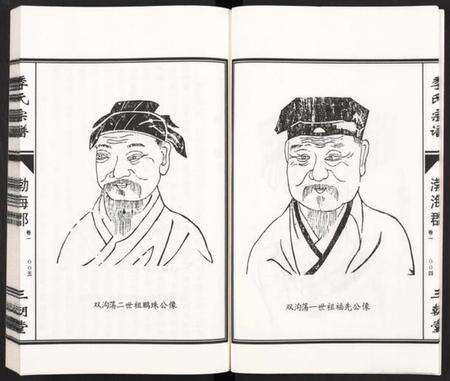 季氏宗譜
渤海郡
卷一
〇〇四
三朝堂
双沟荡一世祖福先公像
双沟荡二世祖鹏珠公像
季氏宗譜
渤海郡
卷一
〇〇五
三朝堂